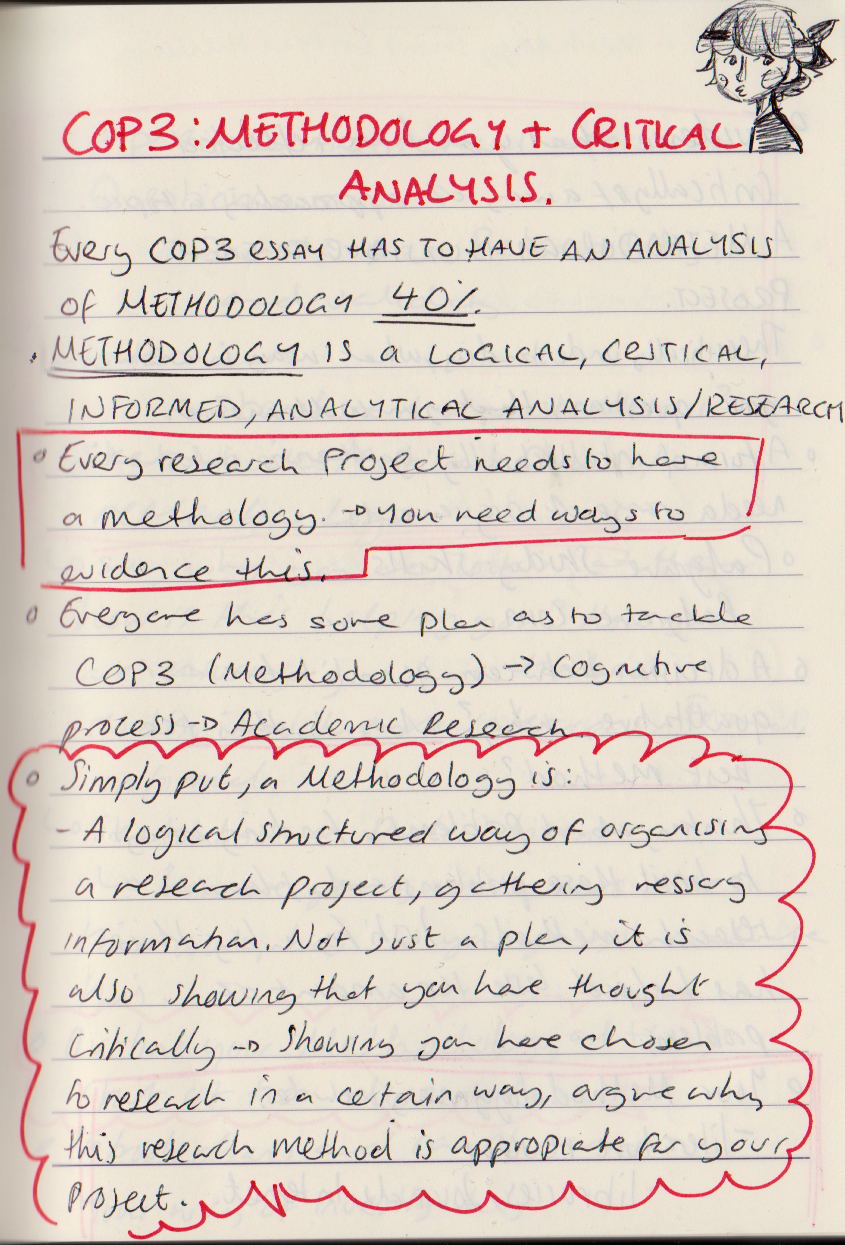 COP3: METHODOLOGY + CRITICAL
ANALYSIS.
Every COP3 ESSAY HAS TO HAVE AN ANALYSIS
of METHODOLOGY 40%.
. METHODOLOGY IS a LOGICAL, CRITICAL,
INFORMED, ANALYTICAL ANALYSIS/RESEARCH
o Every research Project needs to have
a methology. → you need ways to
evidence this.
o Everyone has some plan as to tackle
COP3 (Methodology) → Cognitive
process → Academic Research
o Simply put, a Methodology is:
- A logical structured way of organising
a research project, gathering nessary
information. Not just a plan, it is
also showing that you have thought
Critically → Showing you have chosen
to research in a certain way, argue why
this research method is appropiate for your
Project.